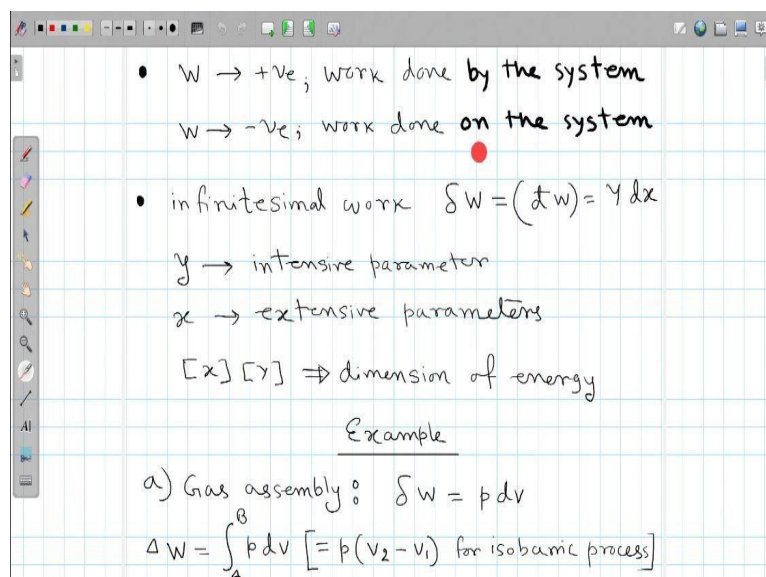 • W → +ve; work done by the system
W → -ve; work done on the system
• infinitesimal work δW = (đW) = Y dx
y → intensive parameter
x → extensive parameters
[x] [Y] ⇒ dimension of energy
Example
a) Gas assembly: δW = p dv
ΔW = ∫_A^B p dv [= p(V₂ - V₁) for isobaric process]
AI